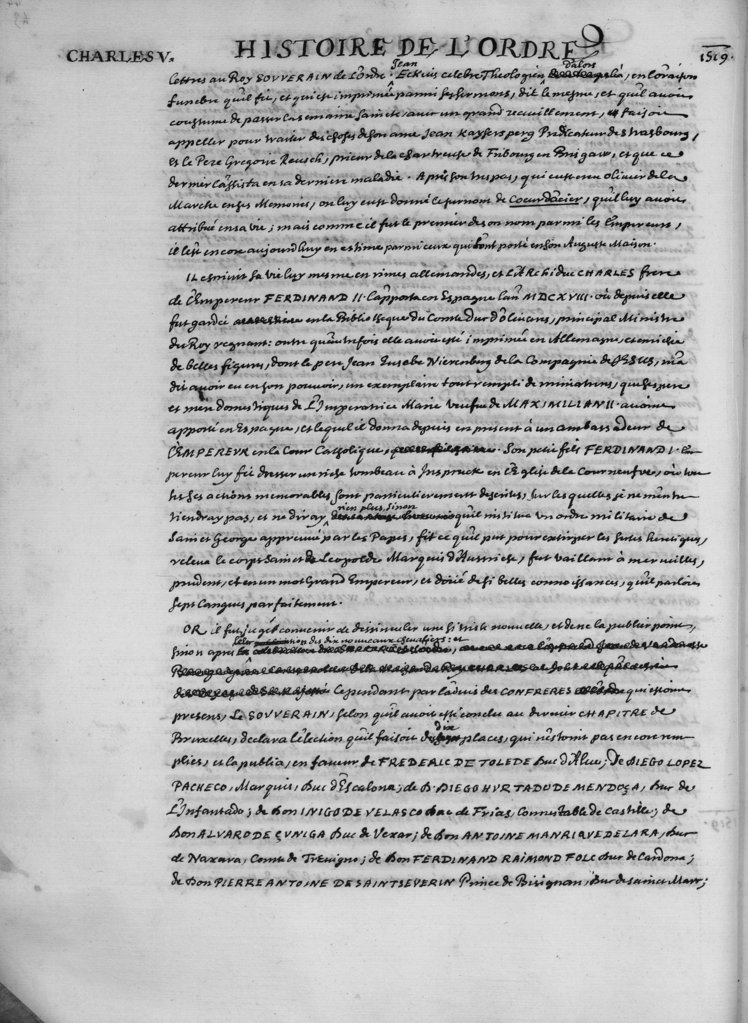 CHARLES V. HISTOIRE DE L'ORDRE 1519.
lettres au Roy SOUVERAIN de l'ordre. Jean Eckius celebre Theologien d'alors, en l'oraison
funebre qu'il fit, et qui est imprimée parmi ses sermons, dit le mesme, et qu'il avoit
coustume de passer la semaine saincte avec un grand recueillement, et faisoit
appeller pour traiter des choses de son ame Jean Kaysersperg Predicateur de Strasbourg,
et le Pere Gregoire Reusch, prieur de la chartreuse de Fribourg en Brisgaw, et que ce
dernier l'assista en sa derniere maladie. Apres son trespas, qui eust creu Olivier de la
Marche en ses Memoires, on luy eust donné le surnom de Coeurdacier, qu'il luy avoit
attribué en sa vie; mais comme il fut le premier de son nom parmi les Empereurs,
il l'est encore aujourd'huy en estime parmi ceux qui l'ont porté en son Auguste Maison.
IL escrivit sa vie luy mesme en rimes allemandes, et l'Archiduc CHARLES frere
de l'Empereur FERDINAND II. l'apporta en Espagne l'an MDCXVIII. où depuis elle
fut gardée en la Bibliotheque du Comte Duc d'Olivares, principal Ministre
du Roy regnant: outre qu'autrefois elle avoit esté imprimée en Allemagne, et enrichie
de belles figures, dont le pere Jean Eusebe Nieremberg de la Compagnie de JESUS, m'a
dit avoir eu en son pouvoir, un exemplaire tout rempli de miniatures, que ses pere
et mere domestiques de l'Imperatrice Marie veufve de MAXIMILIAN II. avoient
apporté en Espagne, et lequel il donna depuis en present à un ambassadeur de
l'EMPEREUR en la Cour Catholique. Son petit fils FERDINAND I. Em-
pereur luy fit dresser un riche tombeau à Inspruck en l'Eglise de la Cour neufve, où tou-
tes ses actions memorables sont particulierement descrites, sur lesquelles je ne m'entre-
tiendray pas, et ne diray rien plus, sinon qu'il institua un ordre militaire de
Sainct George appreuvé par les Papes, fit ce qu'il put pour extirper les sectes heretiques,
releva le corps Sainct de Leopold Marquis d'Austriche, fut vaillant à merveilles,
prudent, et en un mot Grand Empereur, et doüé de si belles connoissances, qu'il parloit
sept langues parfaitement.
OR il fut jugé convenir de dissimuler une si triste nouvelle, et de ne la publier point,
sinon apres la publication des dix nouveaux chevaliers: et
Cependant par l'advis des CONFRERES qui estoient
presens, Le SOUVERAIN, selon qu'il avoit esté conclu au dernier CHAPITRE de
Bruxelles, declara l'election qu'il faisoit de dix places, qui n'estoient pas encore rem-
plies, et la publia, en faveur de FREDERIC DE TOLEDE Duc d'Alve; De DIEGO LOPEZ
PACHECO, Marquis, Duc d'Escalona; de D. DIEGO HURTADO DE MENDOÇA, Duc de
L'Infantado; de Don INIGO DE VELASCO Duc de Frias, Connestable de Castille; de
Don ALVARO DE ÇUNIGA Duc de Vexar; de Don ANTOINE MANRIQUE DE LARA, Duc
de Naxara, Comte de Trevigno; de Don FERDINAND RAIMOND FOLC Duc de Cardona;
de Don PIERRE ANTOINE DE SAINT SEVERIN Prince de Bisignan, Duc de sainct Marc;